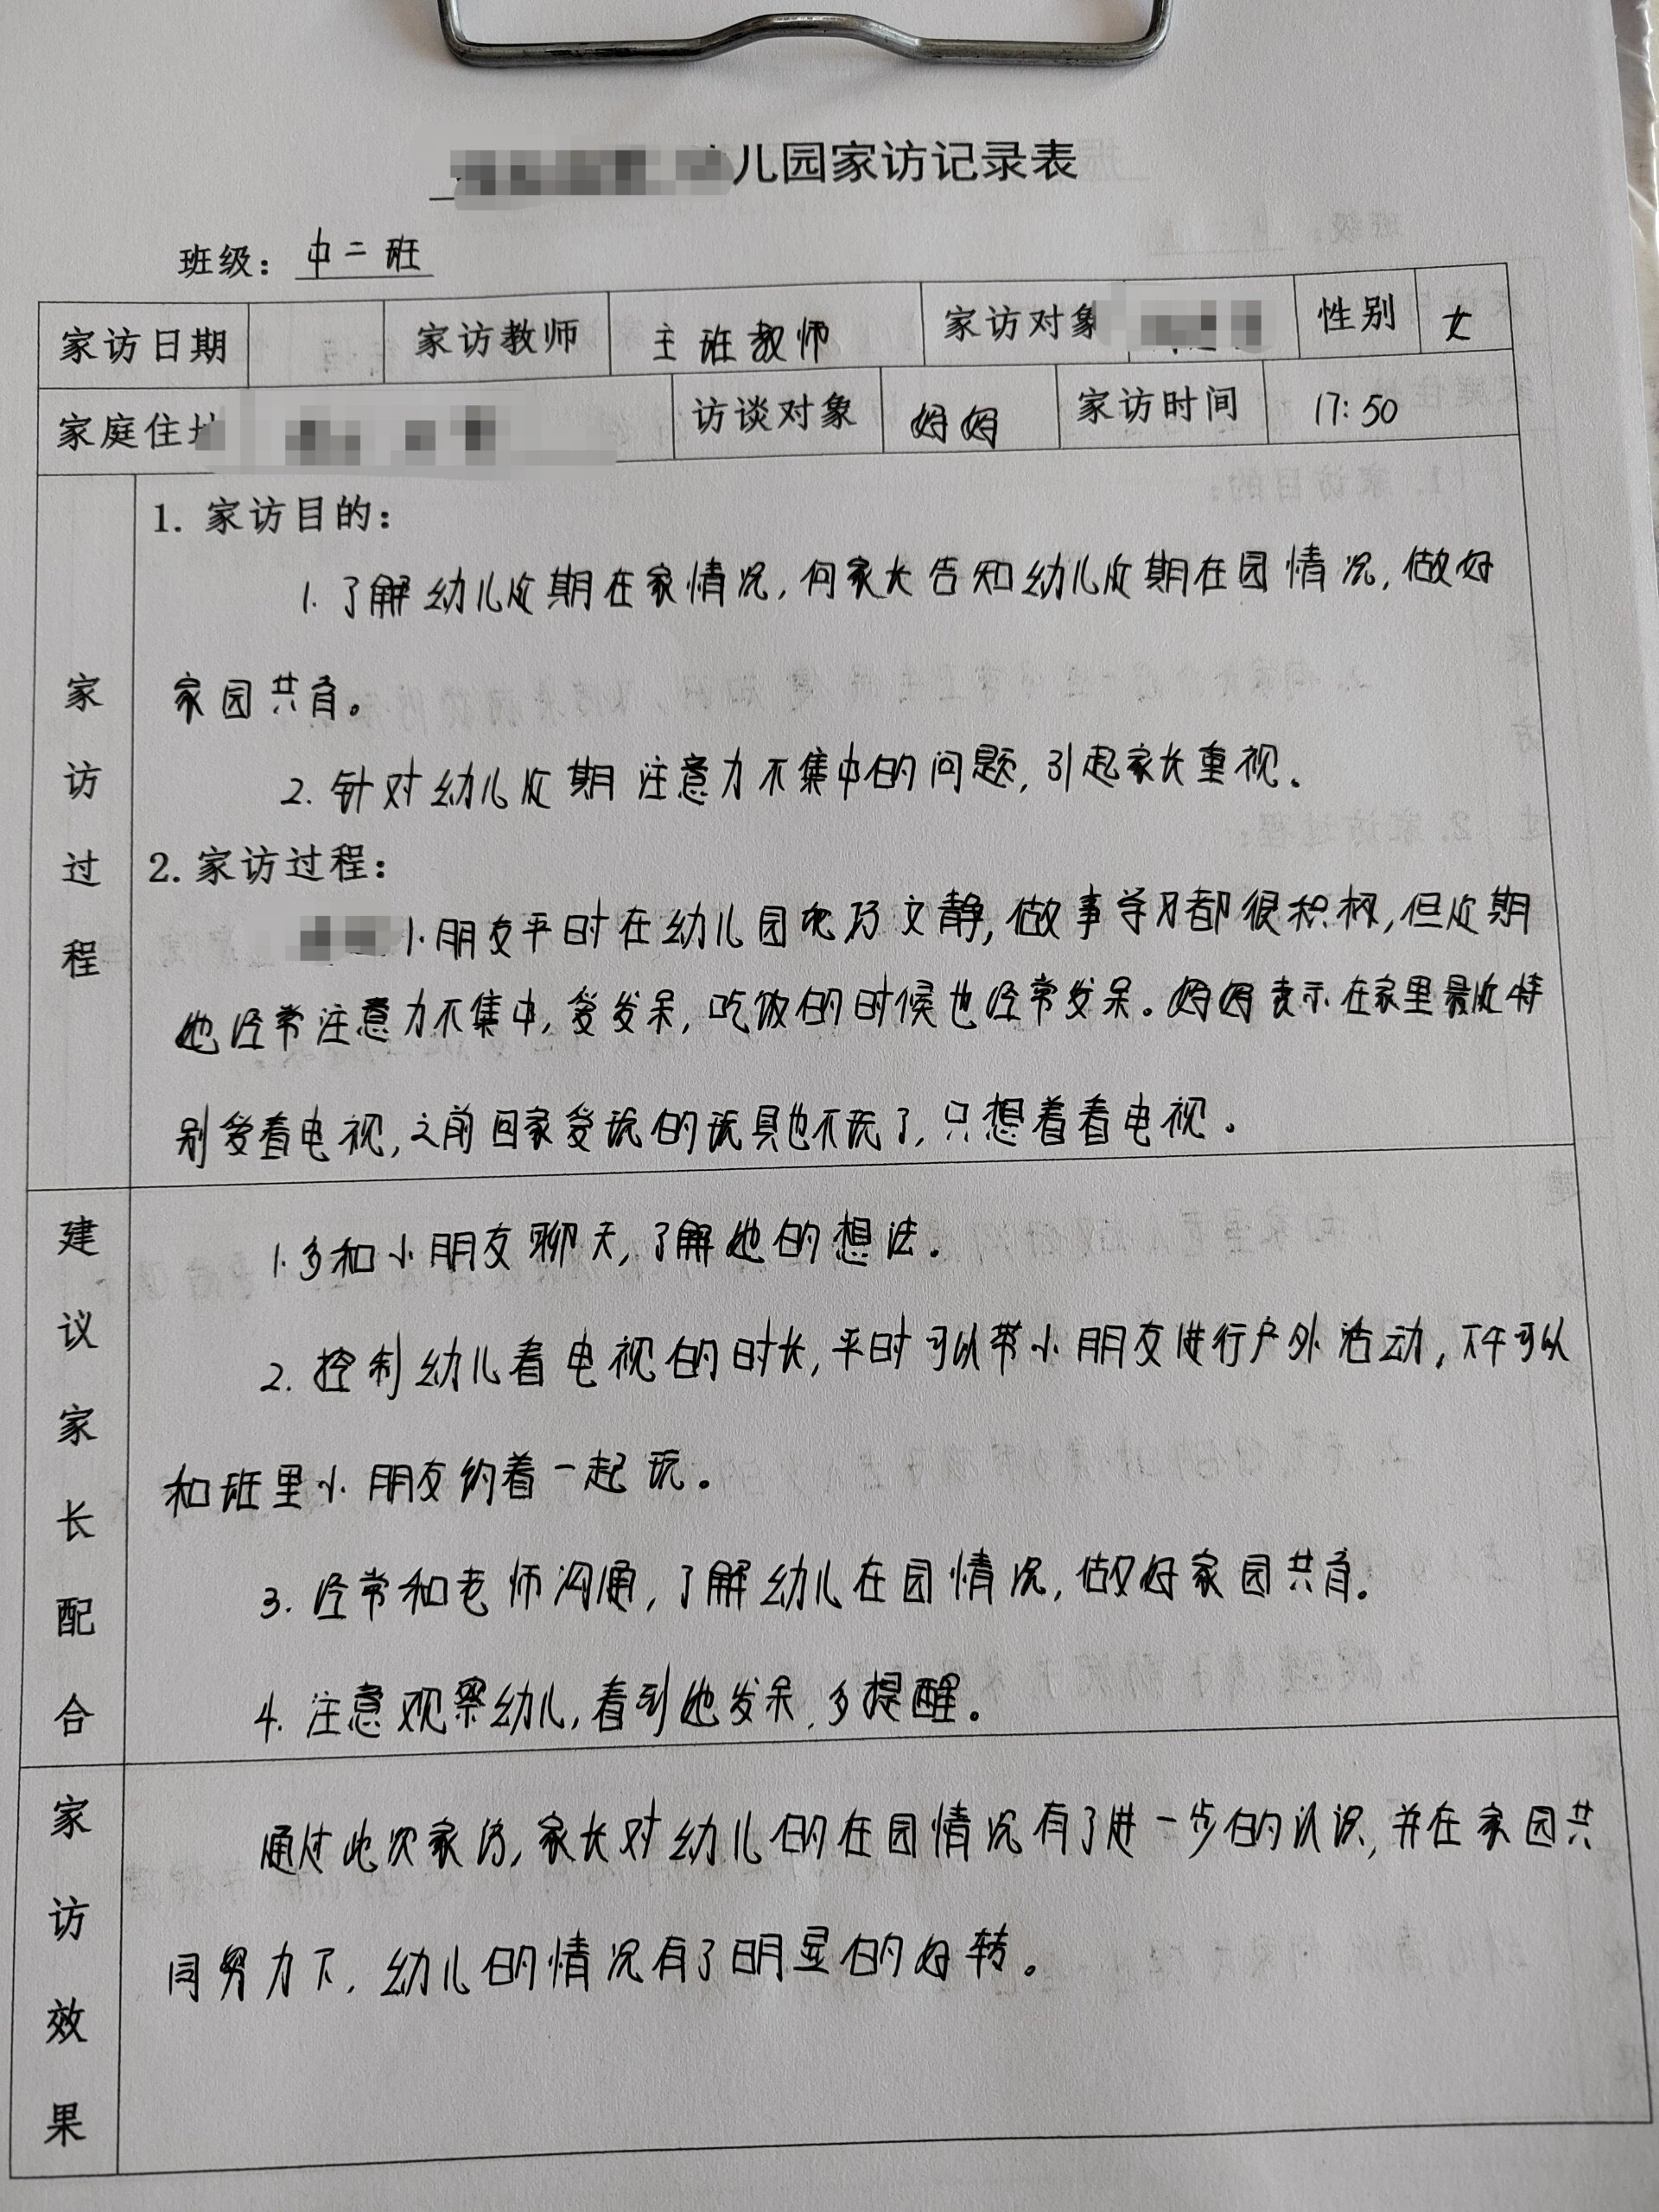 儿园家访记录表
班级：中二班
家访日期 家访教师 主班教师 家访对象 性别 女
家庭住址 访谈对象 妈妈 家访时间 17:50
家访过程
1. 家访目的：
1. 了解幼儿近期在家情况,向家长告知幼儿近期在园情况,做好
家园共育。
2. 针对幼儿近期注意力不集中的问题,引起家长重视。
2. 家访过程：
小朋友平时在幼儿园比较文静,做事学习都很积极,但近期
她经常注意力不集中,爱发呆,吃饭的时候也经常发呆。妈妈表示在家里最近特
别爱看电视,之前回家爱玩的玩具也不玩了,只想着看电视。
建议家长配合
1. 多和小朋友聊天,了解她的想法。
2. 控制幼儿看电视的时长,平时可以带小朋友进行户外活动,下午可以
和班里小朋友约着一起玩。
3. 经常和老师沟通,了解幼儿在园情况,做好家园共育。
4. 注意观察幼儿,看到她发呆,多提醒。
家访效果
通过此次家访,家长对幼儿的在园情况有了进一步的认识,并在家园共
同努力下,幼儿的情况有了明显的好转。